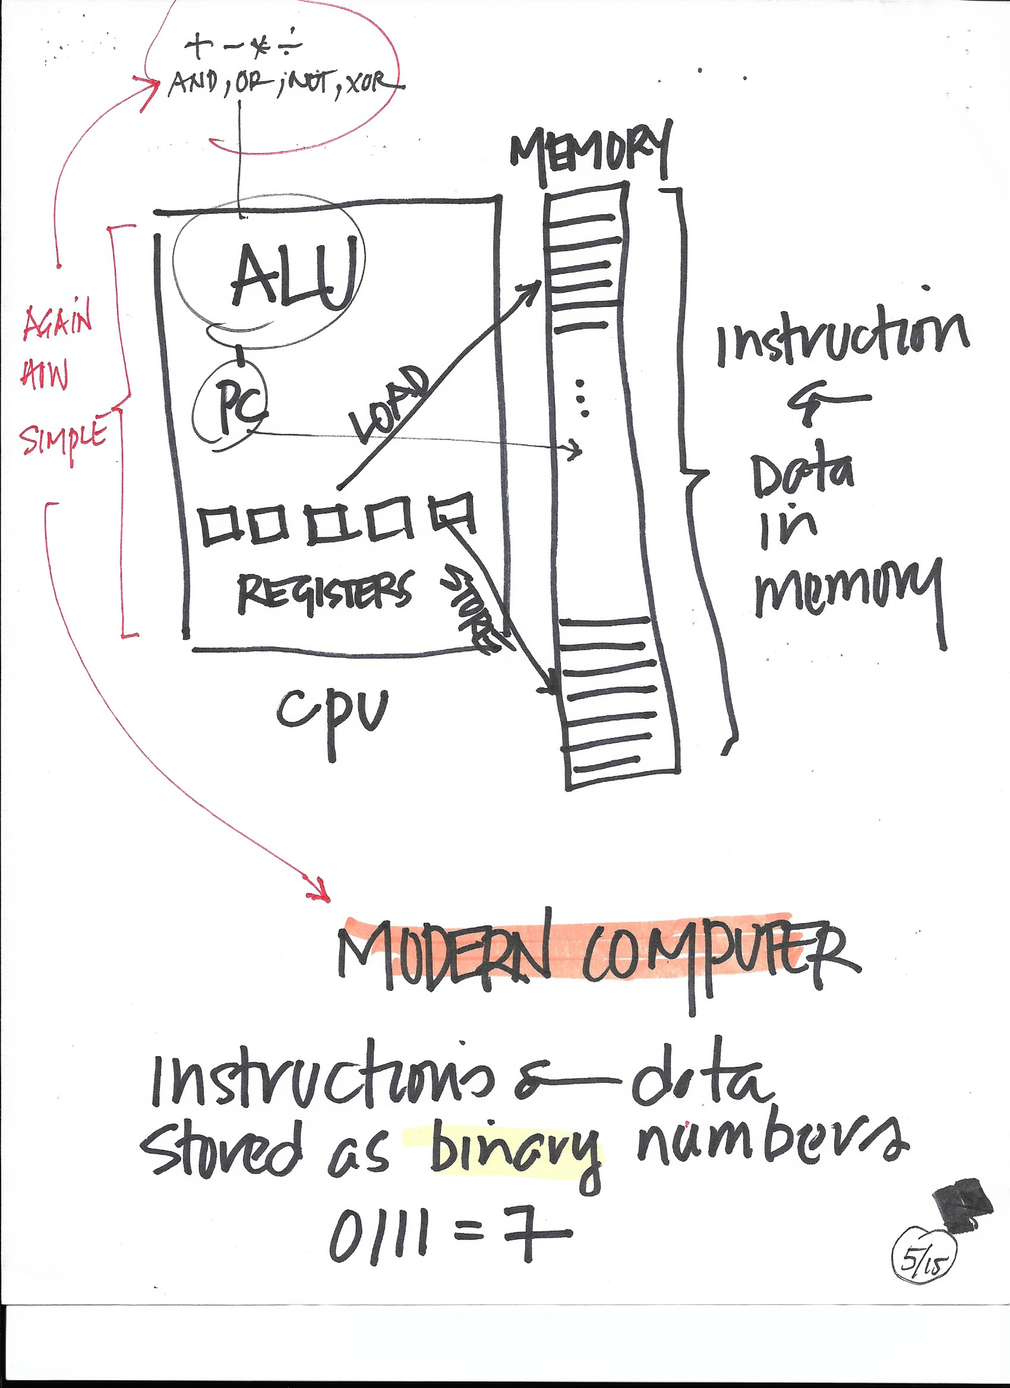 + - * ÷
AND, OR, NOT, XOR
MEMORY
ALU
PC
LOAD
STORE
REGISTERS
CPU
AGAIN
SIMPLE
instruction
&
Data
in
memory
MODERN COMPUTER
instructions & data
stored as binary numbers
0111 = 7
5/15